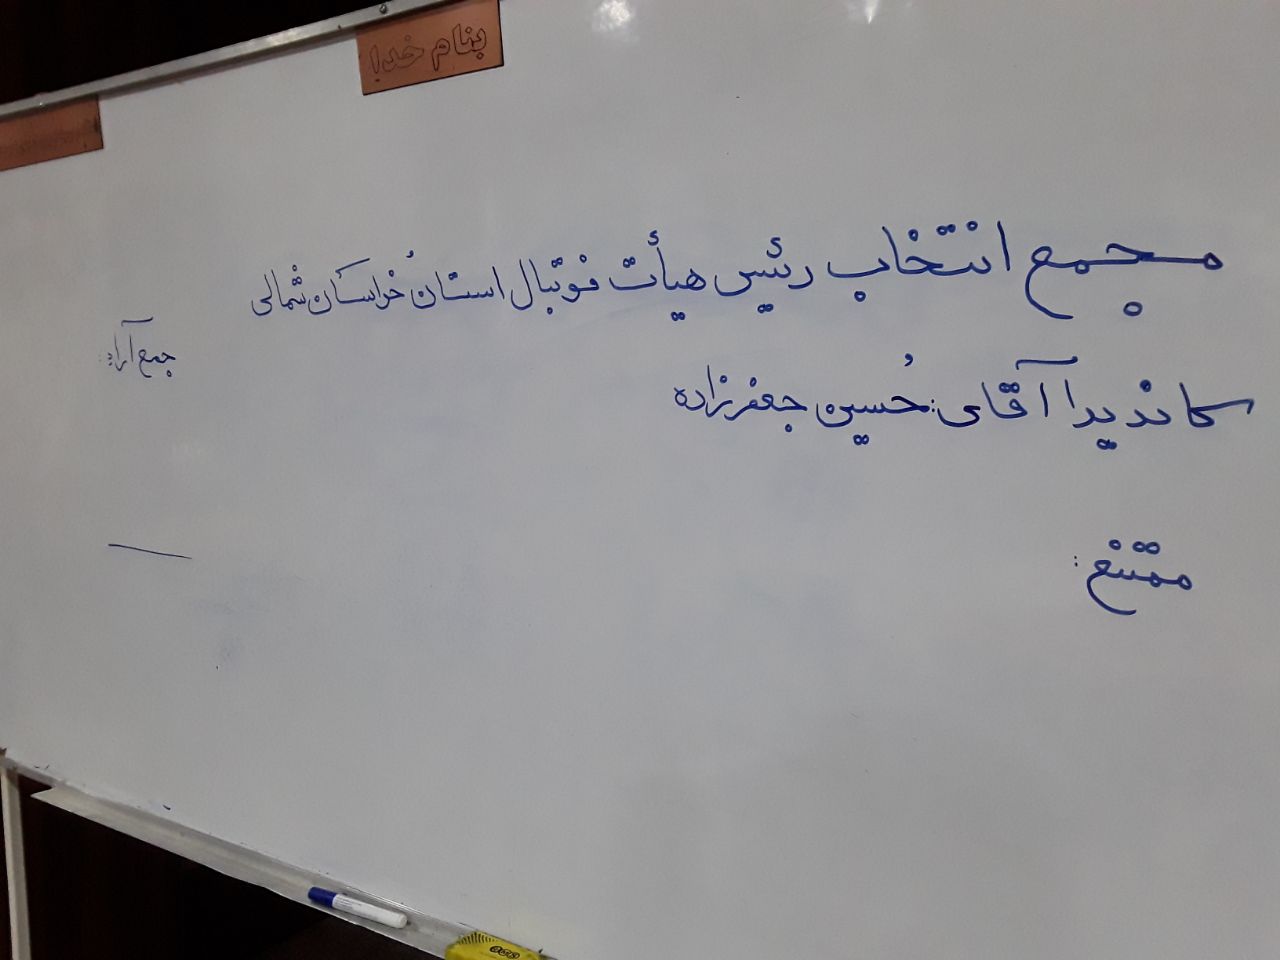 بنام خدا
مجمع انتخاب رئیس هیأت فوتبال استان خُراسان شمالی
جمع آراء:
کاندیدا آقای: حُسین جعفرزاده
ممتنع: